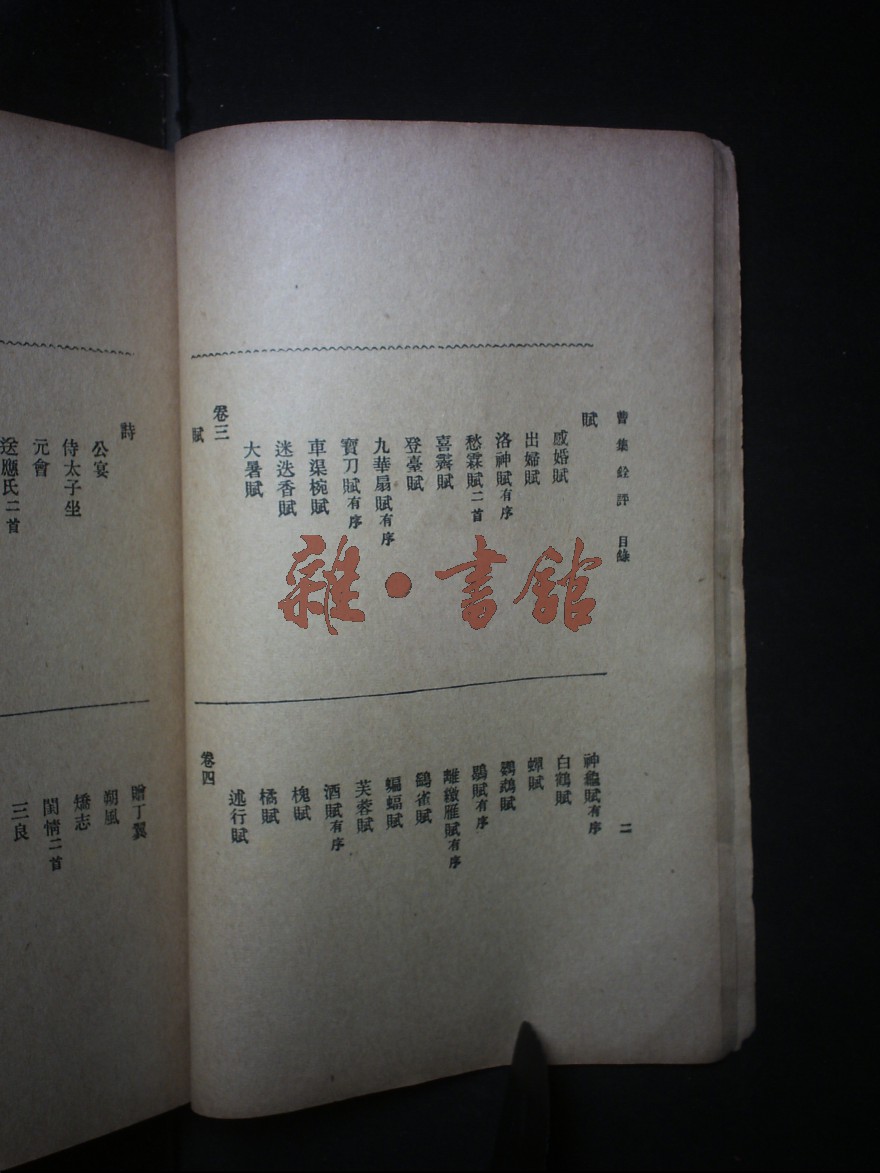 曹集銓評 目錄
二
賦
感婚賦
出婦賦
洛神賦有序
愁霖賦二首
喜霽賦
登臺賦
九華扇賦有序
寶刀賦有序
車渠椀賦
迷迭香賦
大暑賦
卷三
賦
神龜賦有序
白鶴賦
蟬賦
鸚鵡賦
鶡賦有序
離繳雁賦有序
鷂雀賦
蝙蝠賦
芙蓉賦
酒賦有序
槐賦
橘賦
述行賦
卷四
詩
公宴
侍太子坐
元會
送應氏二首
贈丁翼
朔風
矯志
閨情二首
三良
雜·書館